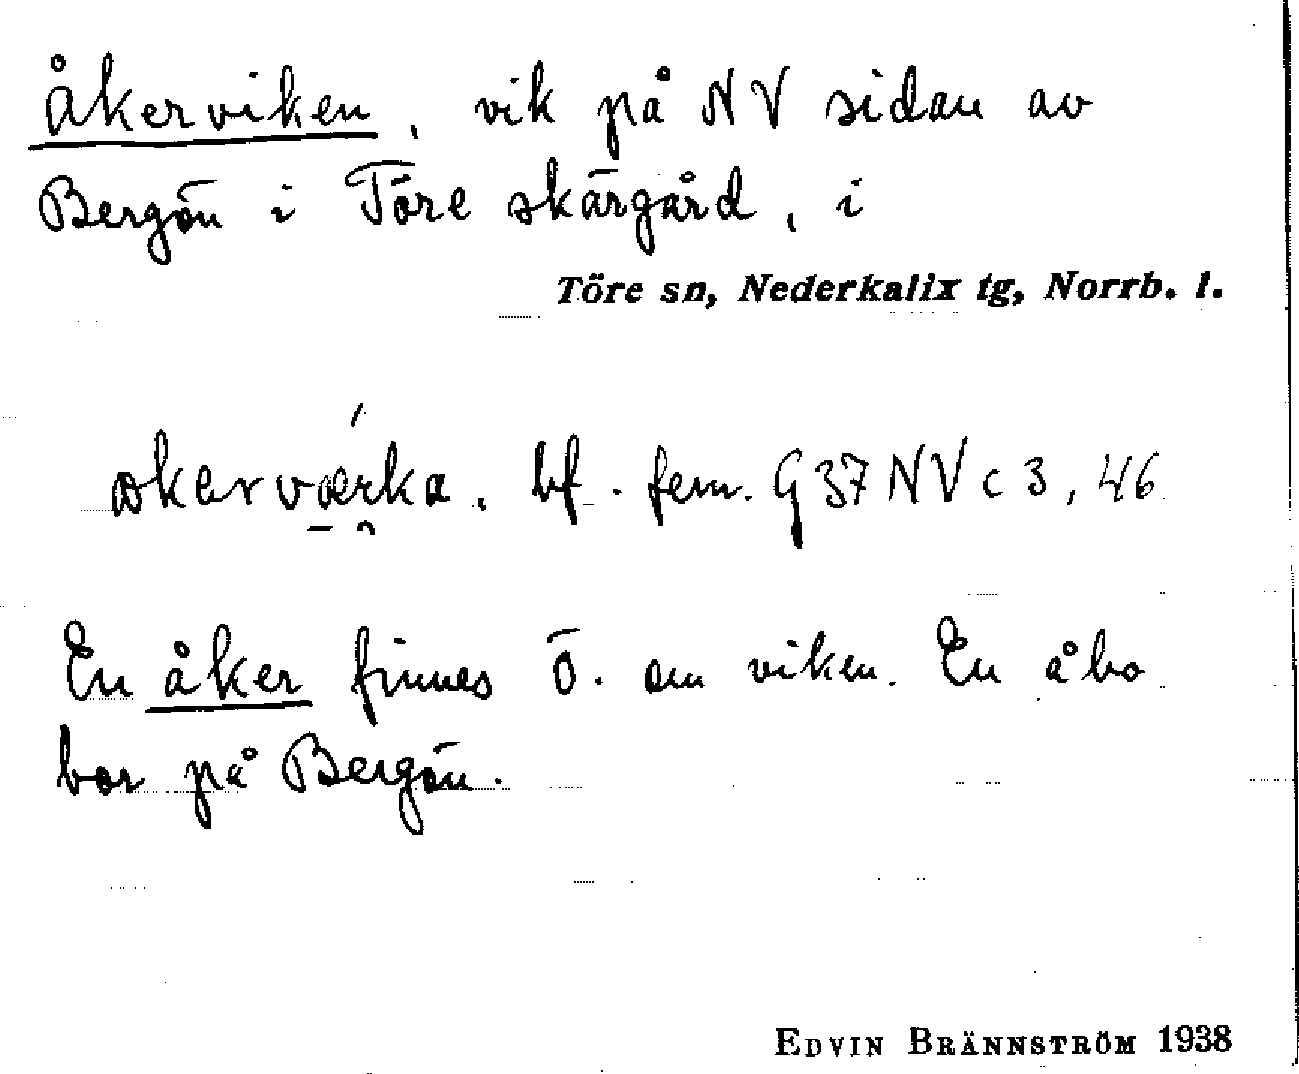 åkerviken, vik på NV sidan av
Bergön i Töre skärgård, i
Töre sn, Nederkalix tg, Norrb. l.
bf. fem. G 37 NV c 3, 46
En åker finnes ö. om viken. En åbo
bor på Bergön.
EDVIN BRÄNNSTRÖM 1938